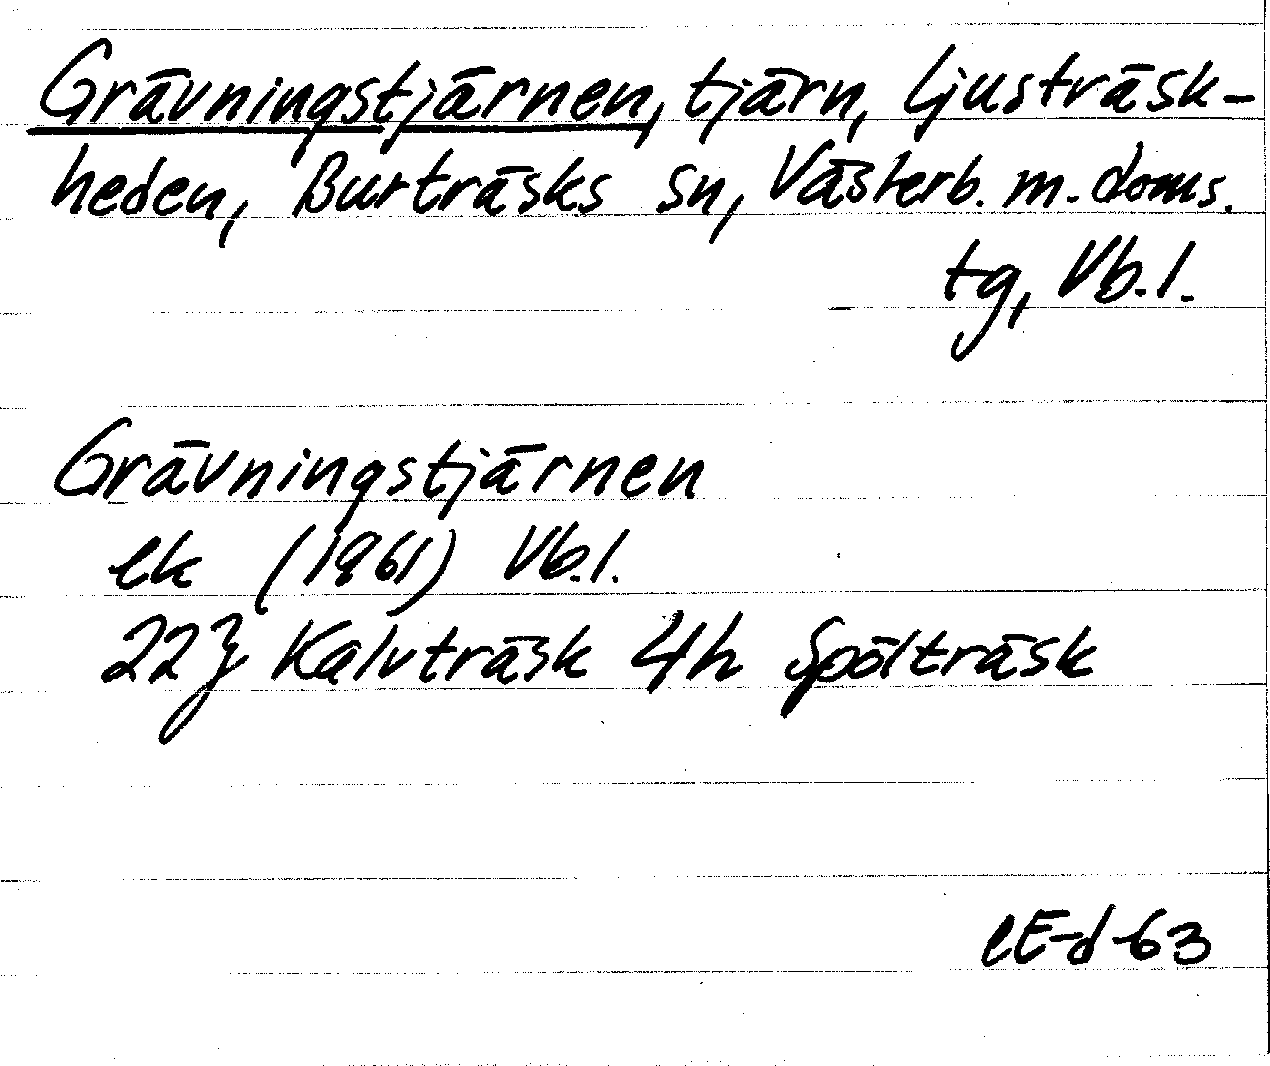 Grävningstjärnen, tjärn, Ljusträsk-
heden, Burträsks sn, Västerb. m. doms.
tg, Vb.l.
Grävningstjärnen
ek (1961) Vb.l.
22J Kalvträsk 4h Spölträsk
CE-d-63